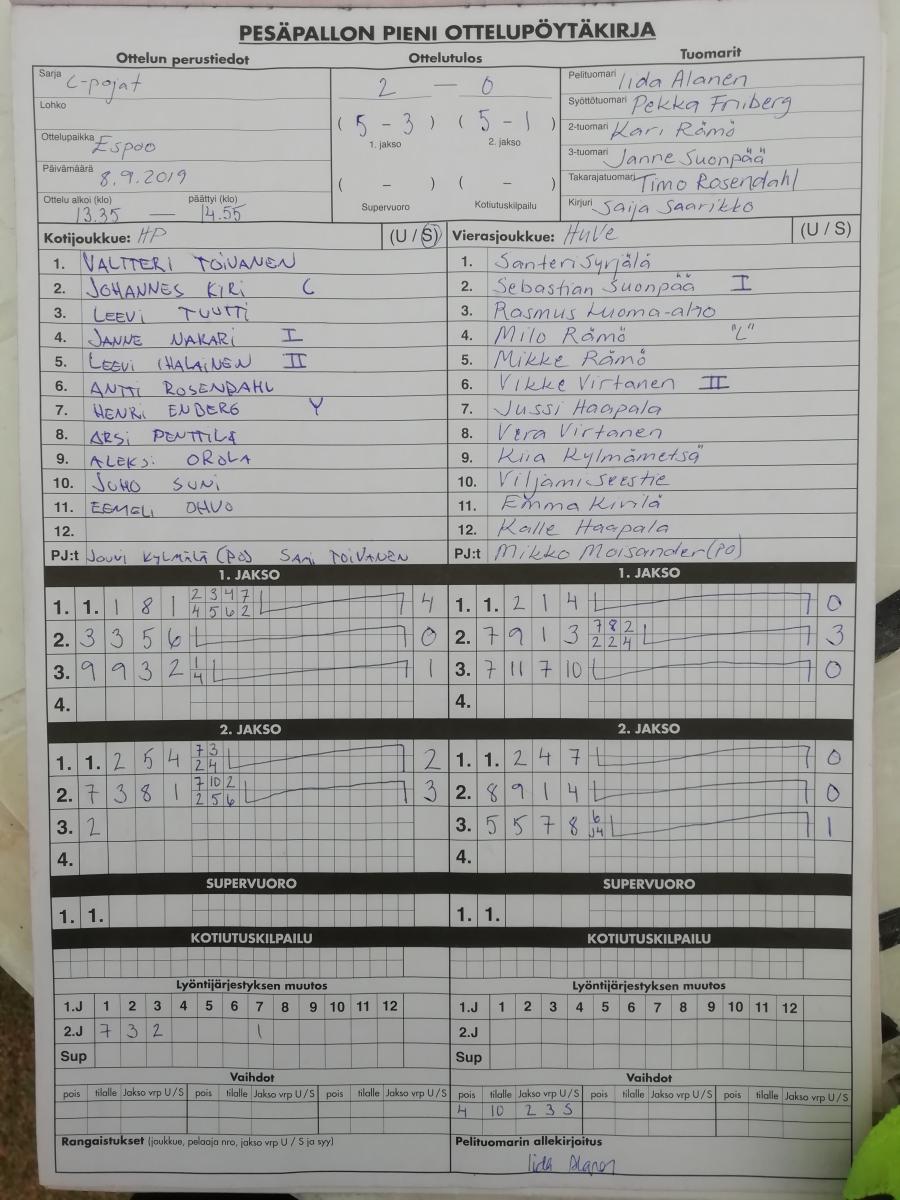 PESÄPALLON PIENI OTTELUPÖYTÄKIRJA
Ottelun perustiedot
Sarja C-pojat
Lohko
Ottelupaikka Espoo
Päivämäärä 8.9.2019
Ottelu alkoi (klo) päättyi (klo)
13.35 — 14.55
Ottelutulos
2 — 0
( 5 - 3 ) ( 5 - 1 )
1. jakso 2. jakso
( - ) ( - )
Supervuoro Kotiutuskilpailu
Tuomarit
Pelituomari Iida Alanen
Syöttötuomari Pekka Friberg
2-tuomari Kari Rämö
3-tuomari Janne Suonpää
Takarajatuomari Timo Rosendahl
Kirjuri Saija Saarikko
Kotijoukkue: HP (U / S)
1. VALTTERI TOIVANEN
2. JOHANNES KIRI C
3. LEEVI TUUTTI
4. JANNE NAKARI I
5. LEEVI IHALAINEN II
6. ANTTI ROSENDAHL
7. HENRI ENBERG Y
8. ARSI PENTTILÄ
9. ALEKSI OROLA
10. JUHO SUNI
11. EEMELI OHVO
12.
PJ:t JOUNI KYLMÄLÄ (PO) SAMI TOIVANEN
Vierasjoukkue: HuVe (U / S)
1. Santeri Syrjälä
2. Sebastian Suonpää I
3. Rasmus Luoma-aho
4. Milo Rämö "L"
5. Mikke Rämö
6. Vikke Virtanen II
7. Jussi Haapala
8. Vera Virtanen
9. Kiia Kylmämetsä
10. Viljami Seestie
11. Emma Kivilä
12. Kalle Haapala
PJ:t Mikko Moisander (PO)
1. JAKSO
1. 1. 1 8 1 2 3 4 7 4
4 5 6 2
2. 3 3 5 6 0
3. 9 9 3 2 1 1
4
4.
1. JAKSO
1. 1. 2 1 4 0
2. 7 9 1 3 7 8 2 3
2 2 4
3. 7 11 7 10 0
4.
2. JAKSO
1. 1. 2 5 4 7 3 2
2 4
2. 7 3 8 1 7 10 2 3
2 5 6
3. 2
4.
2. JAKSO
1. 1. 2 4 7 0
2. 8 9 1 4 0
3. 5 5 7 8 6 1
J4
4.
SUPERVUORO
1. 1.
SUPERVUORO
1. 1.
KOTIUTUSKILPAILU
KOTIUTUSKILPAILU
Lyöntijärjestyksen muutos
1.J 1 2 3 4 5 6 7 8 9 10 11 12
2.J 7 3 2 1
Sup
Lyöntijärjestyksen muutos
1.J 1 2 3 4 5 6 7 8 9 10 11 12
2.J
Sup
Vaihdot
pois tilalle Jakso vrp U / S pois tilalle Jakso vrp U / S pois tilalle Jakso vrp U / S
Vaihdot
pois tilalle Jakso vrp U / S pois tilalle Jakso vrp U / S pois tilalle Jakso vrp U / S
4 10 2 3 S
Rangaistukset (joukkue, pelaaja nro, jakso vrp U / S ja syy)
Pelituomarin allekirjoitus
Iida Alanen